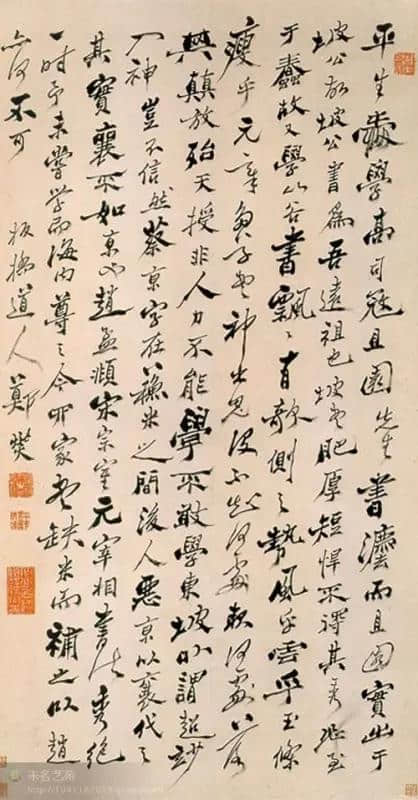 平生愛學高司寇且園先生書灋而且園實出于
坡公故坡公書為吾遠祖也坡書肥厚短悍不得其秀恐至
于蠢故又學山谷書飄〻有欹側之勢風乎雲乎玉條
瘦乎元章書神出鬼没不知何處起何處落
顛放殆天授非人力不能學不敢學東坡以謂超妙
入神豈不信然蔡京字在蘇米之間後人惡京以襄代之
其實襄不如京也趙孟頫宋宗室元宰相書法秀絕
一時予未嘗學而海内尊之今四家書缺米而補之以趙
亦何不可 板橋道人鄭燮
未名艺